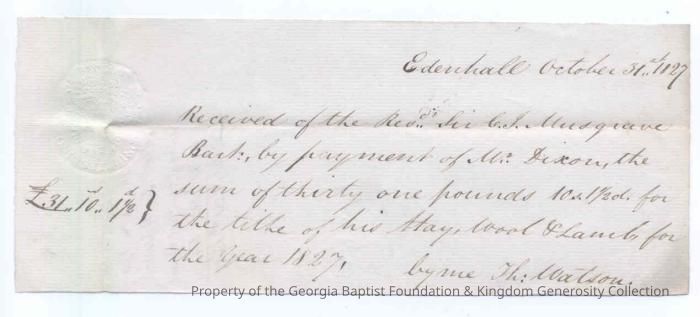 Edenhall October 31st 1827
Received of the Revd. Sir C. J. Musgrave
Bart:, by payment of Mr. Dixon, the
£31.. 10s.. 1½d } sum of thirty one pounds 10s. 1½d. for
the tithe of his Hay, Wool & Lamb, for
the Year 1827,
by me Th: Watson.
Property of the Georgia Baptist Foundation & Kingdom Generosity Collection